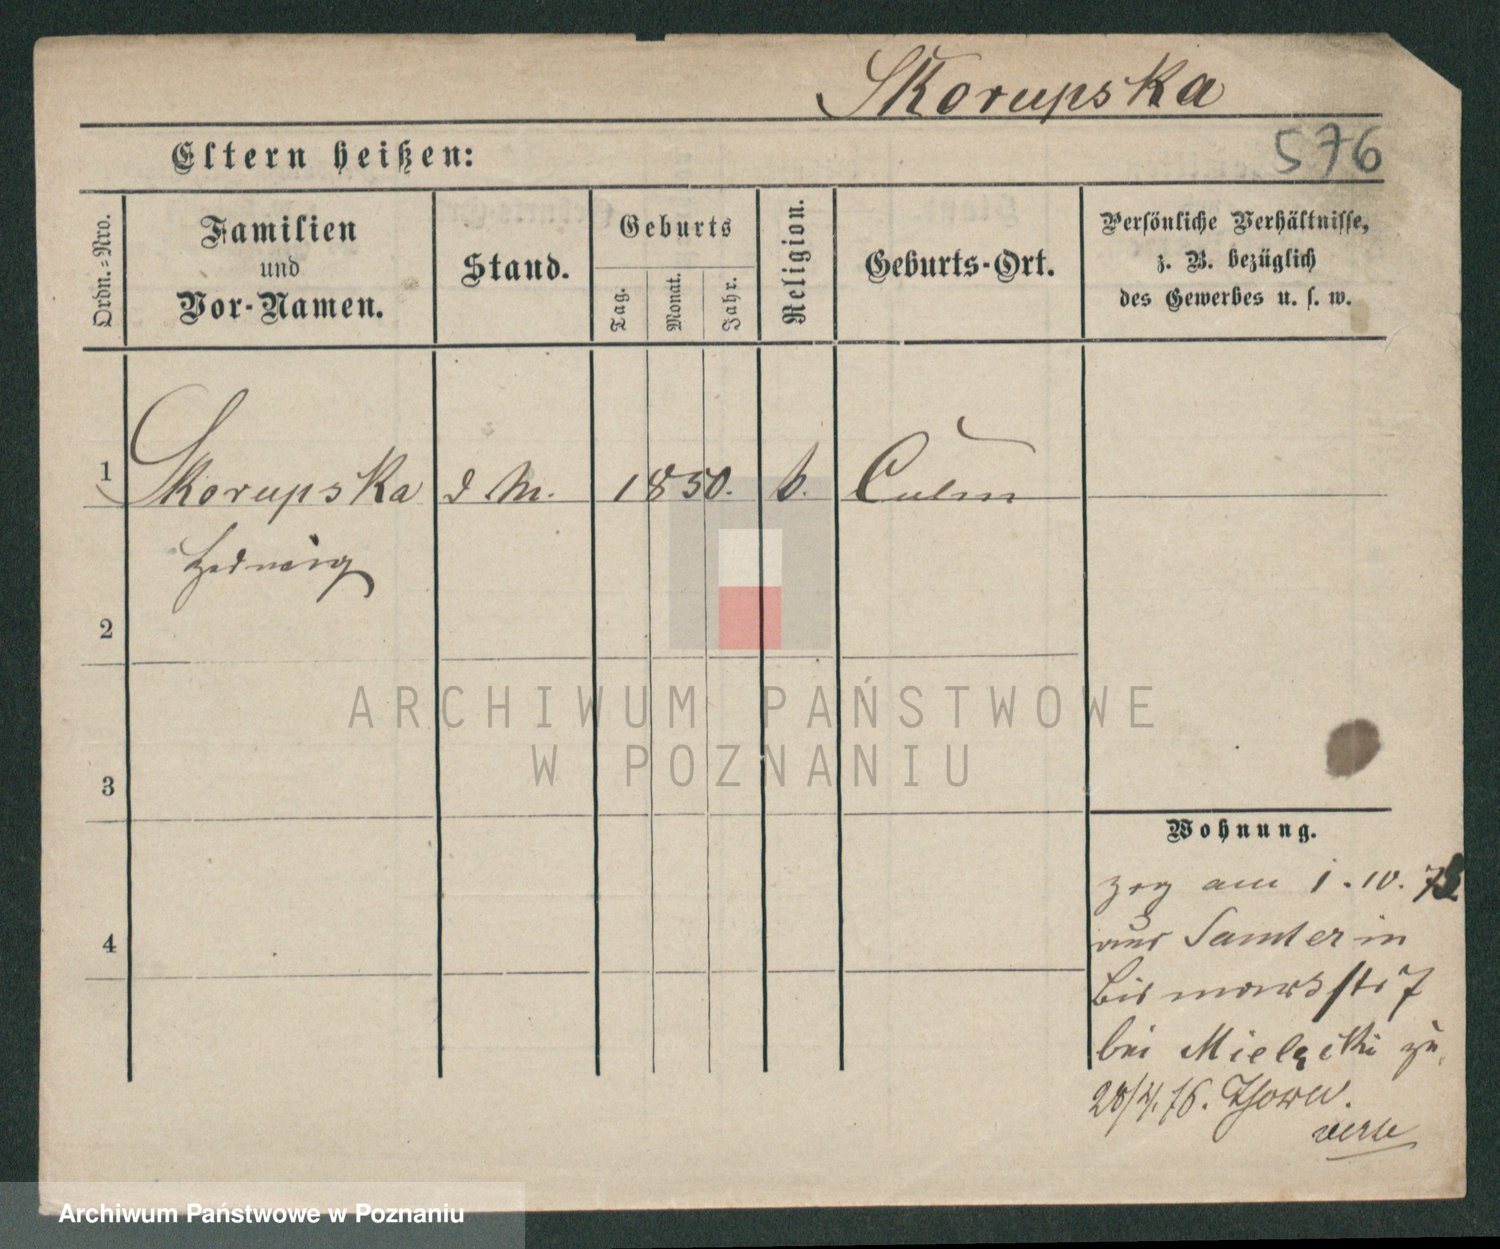 Skorupska
576
Eltern heißen:
Ordn.-Nro.
Familien
und
Vor-Namen.
Stand.
Geburts
Tag.
Monat.
Jahr.
Religion.
Geburts-Ort.
Persönliche Verhältnisse,
z. B. bezüglich
des Gewerbes u. s. w.
1
Skorupska
d M. 1850. k. Culm
Hedwig
2
ARCHIWUM PAŃSTWOWE
W POZNANIU
3
Wohnung.
zog am 1.10.
aus Samter in
Bismarkstr 7
bei Mielecki zu.
4
28/4.76. Thorn.
Archiwum Państwowe w Poznaniu